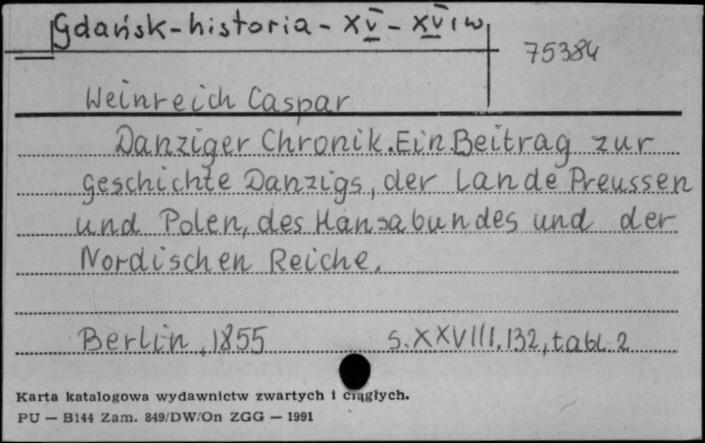 Gdańsk-historia - XV - XVI w
75384
Weinreich Caspar
Danziger Chronik. Ein Beitrag zur
Geschichte Danzigs, der Lande Preussen
und Polen, des Hansabundes und der
Nordischen Reiche.
Berlin, 1855 s. XXVIII. 132, tabl. 2
Karta katalogowa wydawnictw zwartych i ciągłych.
PU — B144 Zam. 849/DW/On ZGG — 1991